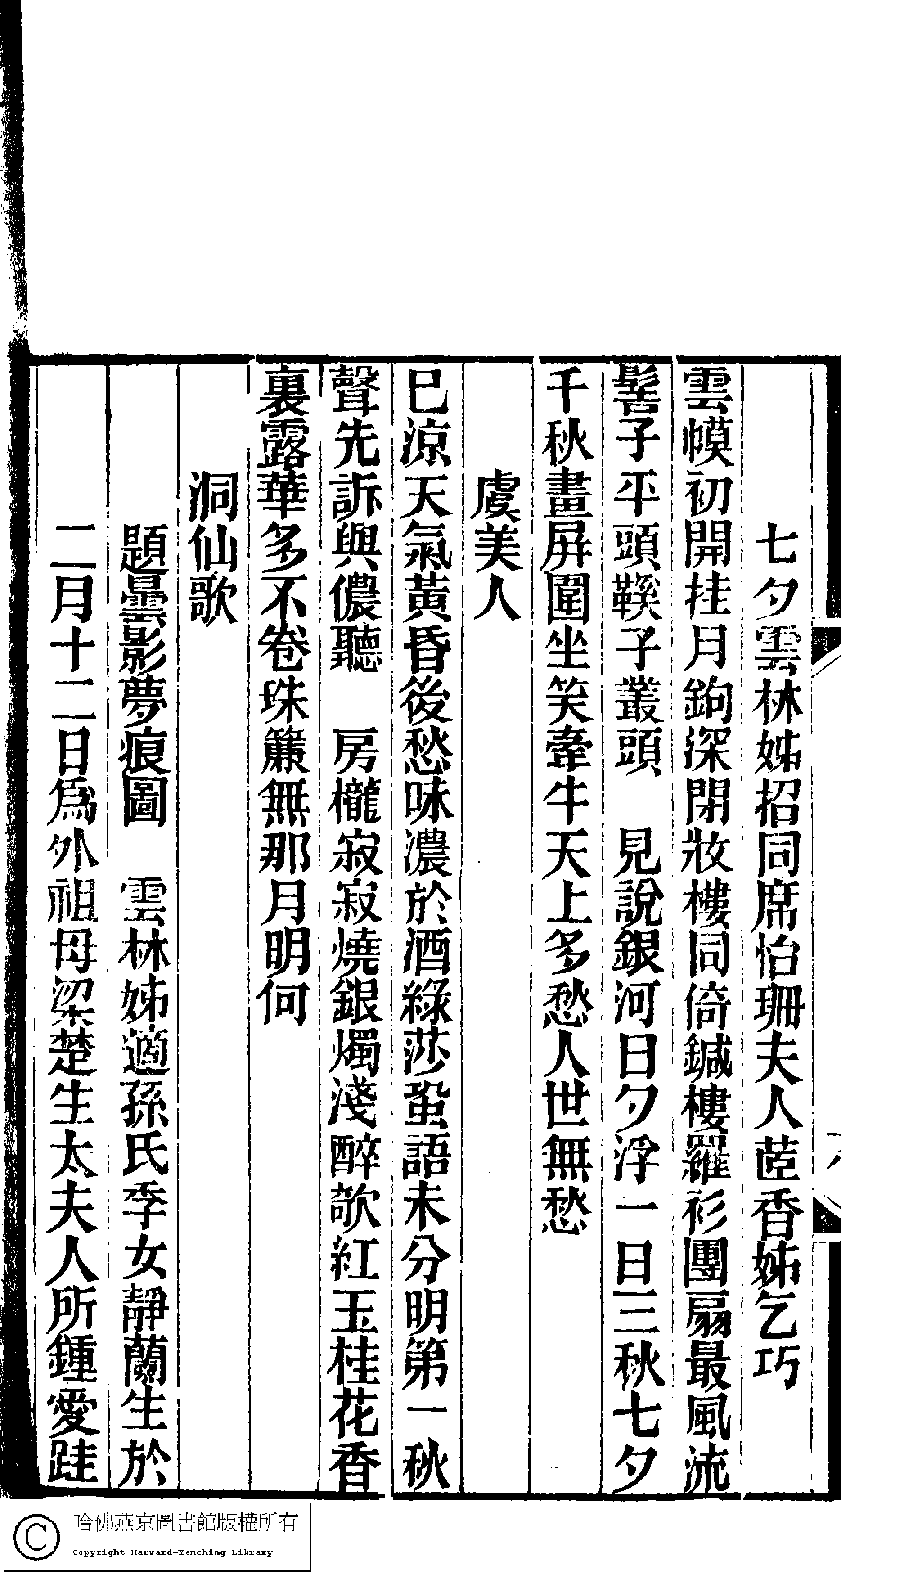 七夕雲林姊招同席怡珊夫人茝香姊乞巧
雲幙初開挂月鉤深閉妝樓同倚鍼樓羅衫團扇最風流
髻子平頭鞵子叢頭　見說銀河日夕浮一日三秋七夕
千秋畫屏圍坐笑牽牛天上多愁人世無愁
虞美人
巳涼天氣黃昏後愁味濃於酒綠莎蛩語未分明第一秋
聲先訴與儂聽　房櫳寂寂燒銀燭淺醉欹紅玉桂花香
裏露華多不卷珠簾無那月明何
洞仙歌
題曇影夢痕圖　雲林姊適孫氏季女靜蘭生於
二月十二日爲外祖母梁楚生太夫人所鍾愛跬
哈佛燕京圖書館版權所有
Copyright Harvard-Yenching Library